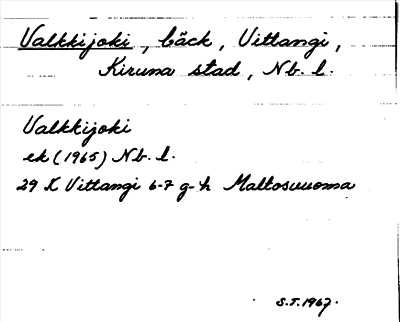 Valkkijoki, bäck, Vittangi,
Kiruna stad, Nb. l.
Valkkijoki
ek (1965) Nb. l.
29 K Vittangi 6-7 g-h Maltosvuoma
S.T. 1967.